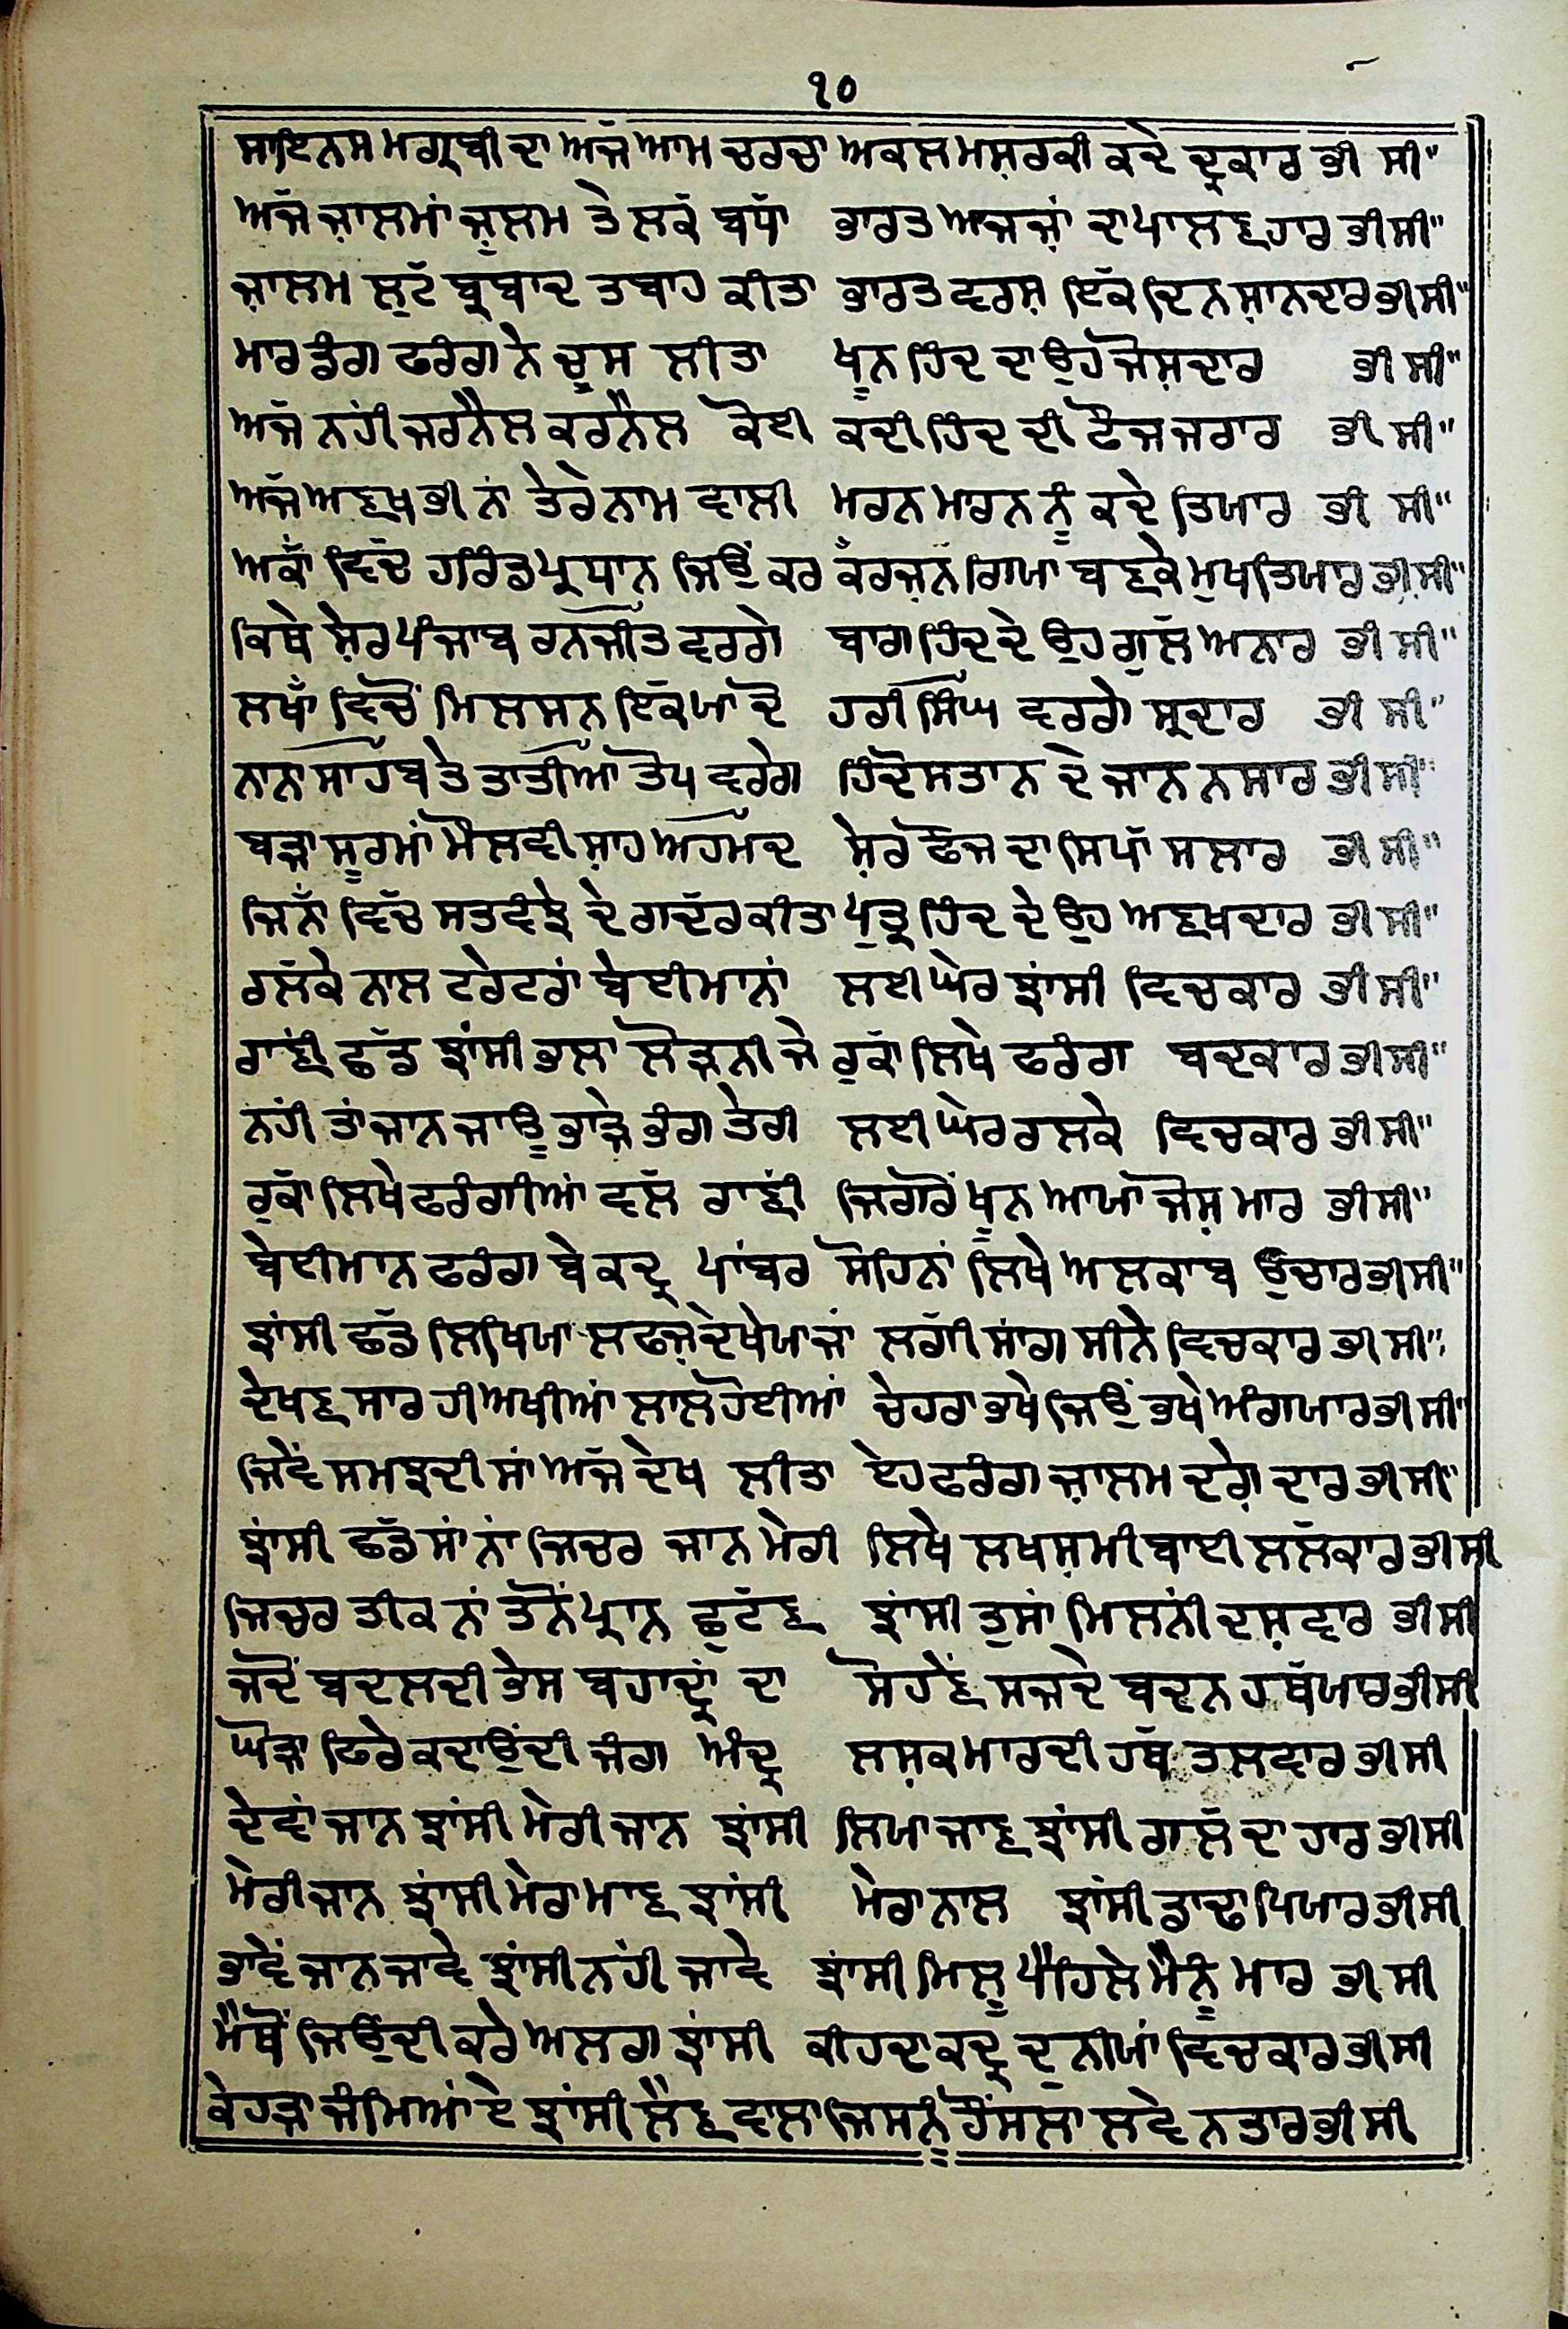 ੧੦
ਸਾਇਨਸ ਮਗ੍ਰਬੀ ਦਾ ਅਜੱ ਆਮ ਚਰਚਾ ਅਕਲ ਮਸ਼ਰਕੀ ਕਦੇ ਦ੍ਰਕਾਰ ਭੀ ਸੀ"
ਅਜੱ ਜ਼ਾਲਮਾਂ ਜ਼ੁਲਮ ਤੇ ਲਕੱ ਬਧਾੱ ਭਾਰਤ ਅਜਜ਼ਾਂ ਦਾ ਪਾਲਣਹਾਰ ਭੀ ਸੀ"
ਜ਼ਾਲਮ ਲੁਟੱ ਬ੍ਰਬਾਦ ਤਬਾਹ ਕੀਤਾ ਭਾਰਤ ਵਰਸ਼ ਇੱਕ ਦਿਨ ਸ਼ਾਨਦਾਰ ਭੀ ਸੀ"
ਮਾਰ ਡੰਗ ਫਰੰਗ ਨੇ ਚੂਸ ਲੀਤਾ ਖੂਨ ਹਿੰਦ ਦਾ ਉਹ ਜੋਸ਼ਦਾਰ ਭੀ ਸੀ"
ਅਜੱ ਨਹੀਂ ਜਰਨੈਲ ਕਰਨੈਲ ਕੋਈ ਕਦੀ ਹਿੰਦ ਦੀ ਫੌਜ ਜਰਾਰ ਭੀ ਸੀ"
ਅਜੱ ਅਣਖ ਭੀ ਨਾਂ ਤੇਰੇ ਨਾਮ ਵਾਲੀ ਮਰਨ ਮਾਰਨ ਨੂੰ ਕਦੇ ਤਿਯਾਰ ਭੀ ਸੀ"
ਅਕਾੱ ਵਿਚੱ ਹਰਿੰਡ ਪ੍ਰਧਾਨ ਜਿਉਂ ਕਰ ਕੱਰਜ਼ਨ ਗਿਯਾ ਬਣਕੇ ਮੁਖਤਿਯਾਰ ਭੀ ਸੀ"
ਕਿਥੇ ਸ਼ੇਰ ਪੰਜਾਬ ਰਨਜੀਤ ਵਰਗੇ ਬਾਗ ਹਿੰਦ ਦੇ ਉਹ ਗੁਲੱ ਅਨਾਰ ਭੀ ਸੀ"
ਲਖਾਂੱ ਵਿਚੋਂ ਮਿਲਸਨ ਇਕੱ ਯਾ ਦੋ ਹਰੀ ਸਿੰਘ ਵਰਗੇ ਸ੍ਰਦਾਰ ਭੀ ਸੀ"
ਨਾਨਾ ਸਾਹਬ ਤੇ ਤਾਤੀਆ ਤੋਪ ਵਰਗੇ ਹਿੰਦੋਸਤਾਨ ਦੇ ਜਾਨ ਨਸਾਰ ਭੀ ਸੀ"
ਬੜਾ ਸੂਰਮਾਂ ਮੌਲਵੀ ਸ਼ਾਹ ਅਹਮਦ ਸ਼ੇਰ ਫੌਜ ਦਾ ਸਿਪਾੱ ਸਲਾਰ ਭੀ ਸੀ"
ਜਿਨਾਂੱ ਵਿਚੱ ਸਤਵੰਝੇ ਦੇ ਗਦੱਰ ਕੀਤਾ ਪੁਤ੍ਰ ਹਿੰਦ ਦੇ ਉਹ ਅਣਖਦਾਰ ਭੀ ਸੀ"
ਰਲੱਕੇ ਨਾਲ ਟਰੇਟਰਾਂ ਬੇਈਮਾਨਾਂ ਲਈ ਘੇਰ ਝਾਂਸੀ ਵਿਚਕਾਰ ਭੀ ਸੀ"
ਰਾਣੀ ਛੱਡ ਝਾਂਸੀ ਭਲਾ ਲੋੜਨੀ ਜੇ ਰੁਕਾੱ ਲਿਖੇ ਫਰੰਗ ਬਦਕਾਰ ਭੀ ਸੀ"
ਨਹੀਂ ਤਾਂ ਜਾਨ ਜਾਊ ਭਾੜੇ ਭੰਗ ਤੇਰੀ ਲਈ ਘੇਰ ਰਲਕੇ ਵਿਚਕਾਰ ਭੀ ਸੀ"
ਰੁਕਾੱ ਲਿਖੇ ਫਰੰਗੀਆਂ ਵਲੱ ਰਾਣੀ ਜਿਗਰੋਂ ਖੂਨ ਆਯਾ ਜੋਸ਼ ਮਾਰ ਭੀ ਸੀ"
ਬੇਈਮਾਨ ਫਰੰਗ ਬੇਕਦ੍ਰ ਪਾਂਬਰ ਸੋਹਿਨਾਂ ਲਿਖੇ ਅਲਕਾਬ ਉਚਾਰ ਭੀ ਸੀ"
ਝਾਂਸੀ ਛਡੱ ਲਿਖਿਯਾ ਲਫਜ਼ ਦੇਖੇਯਾ ਜਾਂ ਲਗੀੱ ਸਾਂਗ ਸੀਨੇ ਵਿਚਕਾਰ ਭੀ ਸੀ"
ਦੇਖਣ ਸਾਰ ਹੀ ਅਖੀਆਂ ਲਾਲ ਹੋਈਆਂ ਚੇਹਰਾ ਭਖੇ ਜਿਉਂ ਭਖੇ ਅੰਗਯਾਰ ਭੀ ਸੀ"
ਜਿਵੇਂ ਸਮਝਦੀ ਸਾਂ ਅਜੱ ਦੇਖ ਲੀਤਾ ਏਹ ਫਰੰਗ ਜ਼ਾਲਮ ਦਗ਼ੇਦਾਰ ਭੀ ਸੀ"
ਝਾਂਸੀ ਛਡੱਸਾਂ ਨਾਂ ਜਿਚਰ ਜਾਨ ਮੇਰੀ ਲਿਖੇ ਲਖਸ਼ਮੀ ਬਾਈ ਲਲੱਕਾਰ ਭੀ ਸੀ
ਜਿਚਰ ਤੀਕ ਨਾਂ ਤਨੋਂ ਪ੍ਰਾਨ ਛੁਟੱਣ ਝਾਂਸੀ ਤੁਸਾਂ ਮਿਲਨੀਂ ਦਸ਼ਵਾਰ ਭੀ ਸੀ
ਜਦੋਂ ਬਦਲਦੀ ਭੇਸ ਬਹਾਦ੍ਰਾਂ ਦਾ ਸੋਹਣੇਂ ਸਜਦੇ ਬਦਨ ਹਥੱਯਾਰ ਭੀ ਸੀ
ਘੋੜਾ ਫਿਰੇ ਕਦਾਉਂਦੀ ਜੰਗ ਅੰਦ੍ਰ ਲਸ਼ਕ ਮਾਰਦੀ ਹਥੱ ਤਲਵਾਰ ਭੀ ਸੀ
ਦੇਵਾਂ ਜਾਨ ਝਾਂਸੀ ਮੇਰੀ ਜਾਨ ਝਾਂਸੀ ਲਿਯਾ ਜਾਣ ਝਾਂਸੀ ਗਲੱ ਦਾ ਹਾਰ ਭੀ ਸੀ
ਮੇਰੀ ਜਾਨ ਝਾਂਸੀ ਮੇਰਾ ਮਾਣ ਝਾਂਸੀ ਮੇਰਾ ਨਾਲ ਝਾਂਸੀ ਡਾਢਾ ਪਿਯਾਰ ਭੀ ਸੀ
ਭਾਵੇਂ ਜਾਨ ਜਾਵੇ ਝਾਂਸੀ ਨਹੀਂ ਜਾਵੇ ਝਾਂਸੀ ਮਿਲੂ ਪੈਹਿਲੇ ਮੈਨੂੰ ਮਾਰ ਭੀ ਸੀ
ਮੈਥੋਂ ਜਿਉਂਦੀ ਕਰੇ ਅਲਗ ਝਾਂਸੀ ਕੀਹਦਾ ਕਦ੍ਰ ਦੁਨੀਯਾਂ ਵਿਚਕਾਰ ਭੀ ਸੀ
ਕੇਹੜਾ ਜੰਮਿਆਂ ਏ ਝਾਂਸੀ ਲੈਣ ਵਾਲਾ ਜਿਸਨੂੰ ਹੌਂਸਲਾ ਲਵੇ ਨ ਤਾਰ ਭੀ ਸੀ